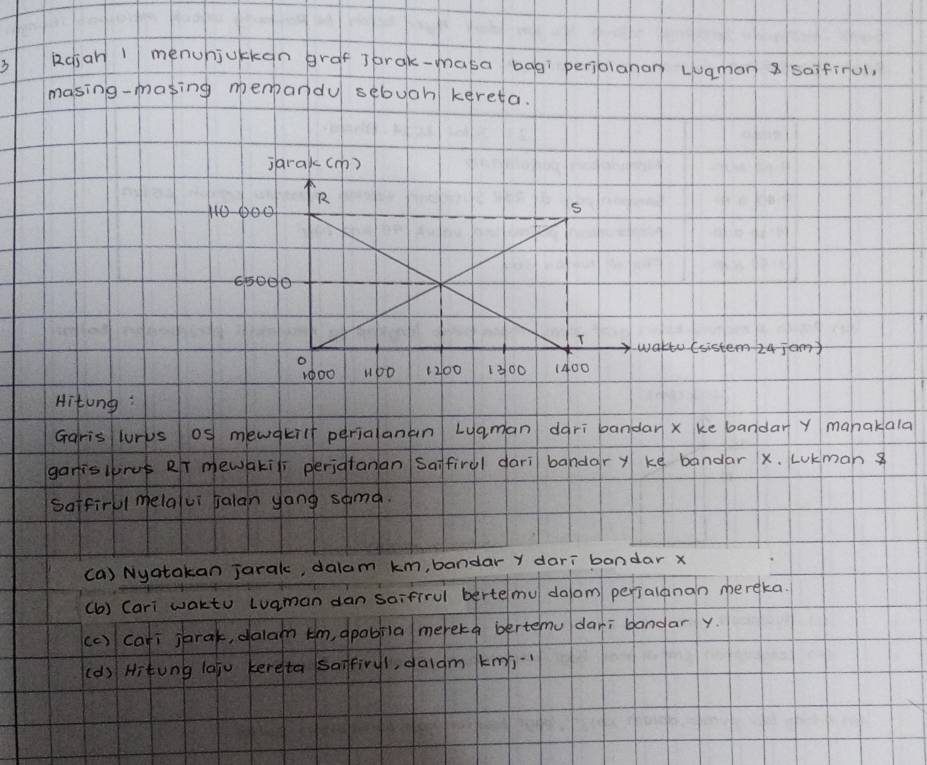 3 Rajah 1 menunjukkan graf Jarak-masa bagi perjalanan Luqman & saifirul,
masing-masing memandu sebuah kereta.
jarak (m)
R
110 000
S
65000
T
waktu (sistem 24 jam)
0
1000 1100 1200 1300 1400
Hitung :
Garis lurus OS mewakili perjalanan Luqman dari bandar X ke bandar Y manakala
garis lurus RT mewakili perjalanan Saifirul dari bandar Y ke bandar X. Lukman &
Saifirul melalui jalan yang sama.
(a) Nyatakan jarak, dalam km, bandar Y dari bandar X
(b) Cari waktu Luqman dan Saifirul bertemu dalam perjalanan mereka.
(c) Cari jarak, dalam km, apabila mereka bertemu dari bandar Y.
(d) Hitung laju kereta Saifirul, dalam kmj-1